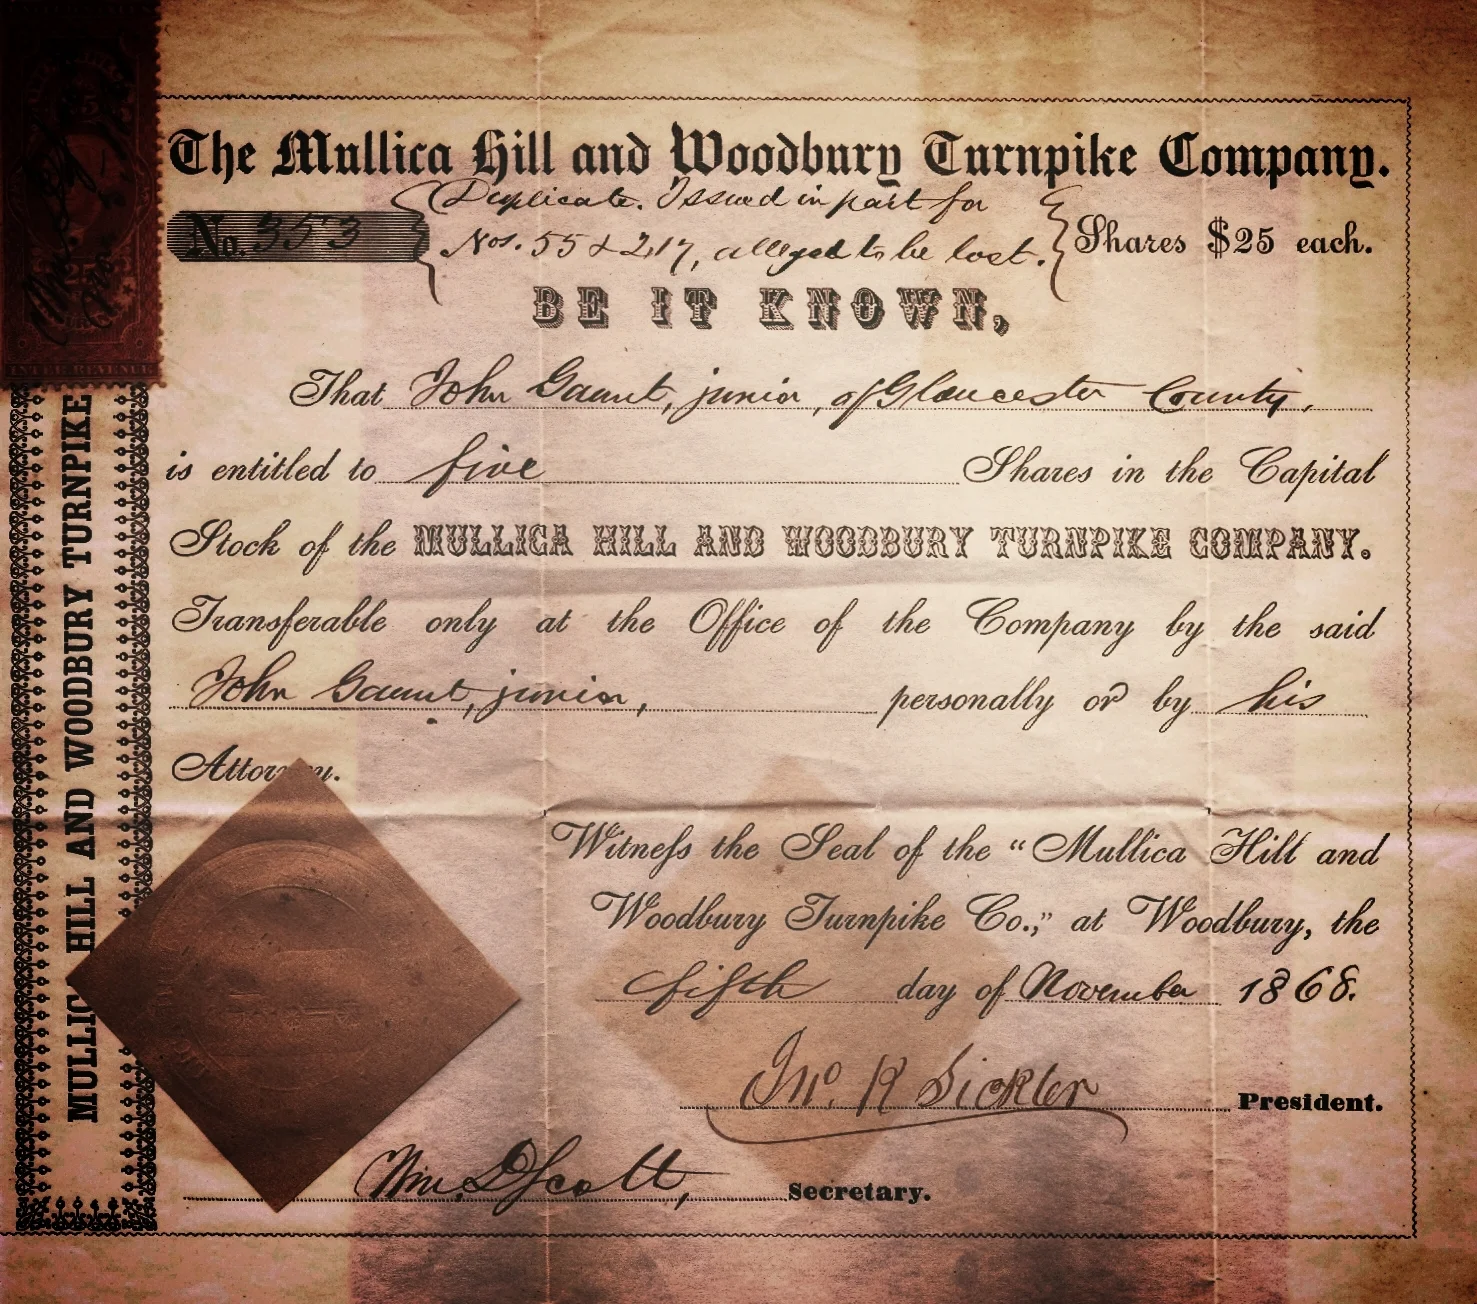 The Mullica Hill and Woodbury Turnpike Company.
Duplicate. Issued in part for
No. 353
Nos. 55 & 217, alleged to be lost.
Shares $25 each.
BE IT KNOWN,
That John Gaunt, junior, of Gloucester County,
is entitled to five Shares in the Capital
Stock of the MULLICA HILL AND WOODBURY TURNPIKE COMPANY.
Transferable only at the Office of the Company by the said
John Gaunt, junior, personally or by his
Attorney.
Witneſs the Seal of the “Mullica Hill and
Woodbury Turnpike Co.,” at Woodbury, the
fifth day of November 1868.
Jno. R Sickler President.
Wm. D Scott, Secretary.
MULLICA HILL AND WOODBURY TURNPIKE
INTER. REVENUE